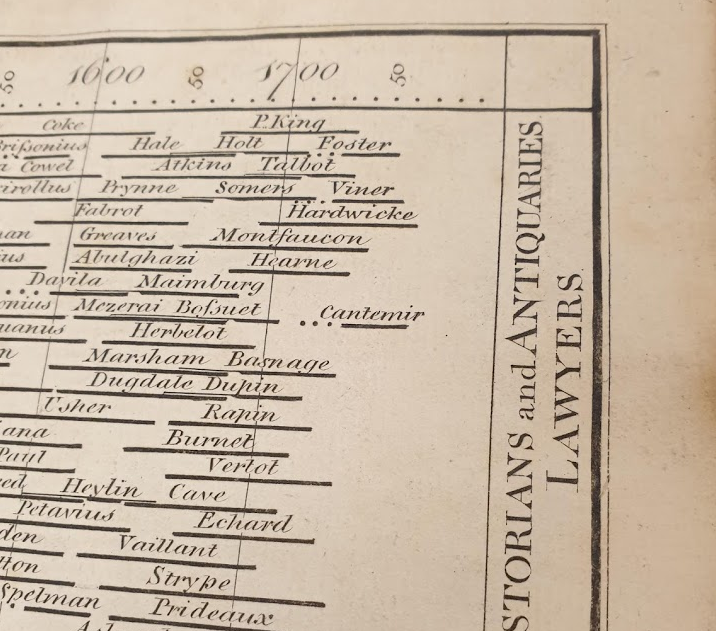 50 1600 50 1700 50
Coke P.King
Brißonius Hale Holt Foster
Cowel Atkins Talbot
cirollus Prynne Somers Viner
Fabrot Hardwicke
Greaves Montfaucon
Abulghazi Hearne
Davila Maimburg
onius Mezerai Boſsuet Cantemir
uanus Herbelot
Marsham Basnage
Dugdale Dupin
Usher Rapin
iana Burnet
Paul Vertot
Heylin Cave
Petavius Echard
den Vaillant
lton Strype
Spelman Prideaux
STORIANS and ANTIQUARIES
LAWYERS